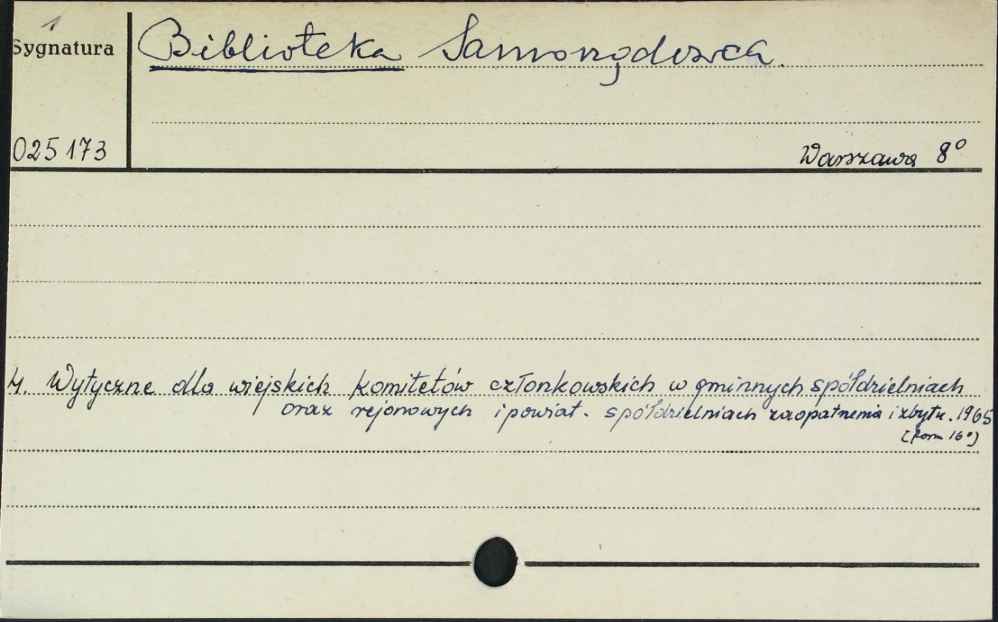 1
Sygnatura
Biblioteka Samorządowca.
025173
Warszawa 8°
4. Wytyczne dla wiejskich komitetów członkowskich w gminnych spółdzielniach
oraz rejonowych i powiat. spółdzielniach zaopatrzenia i zbytu. 1965
(form 16°)